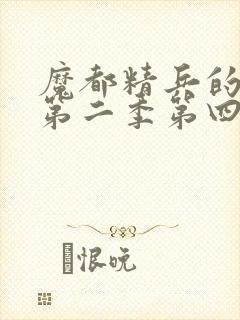 魔都精兵的
第二季第四
恨晚